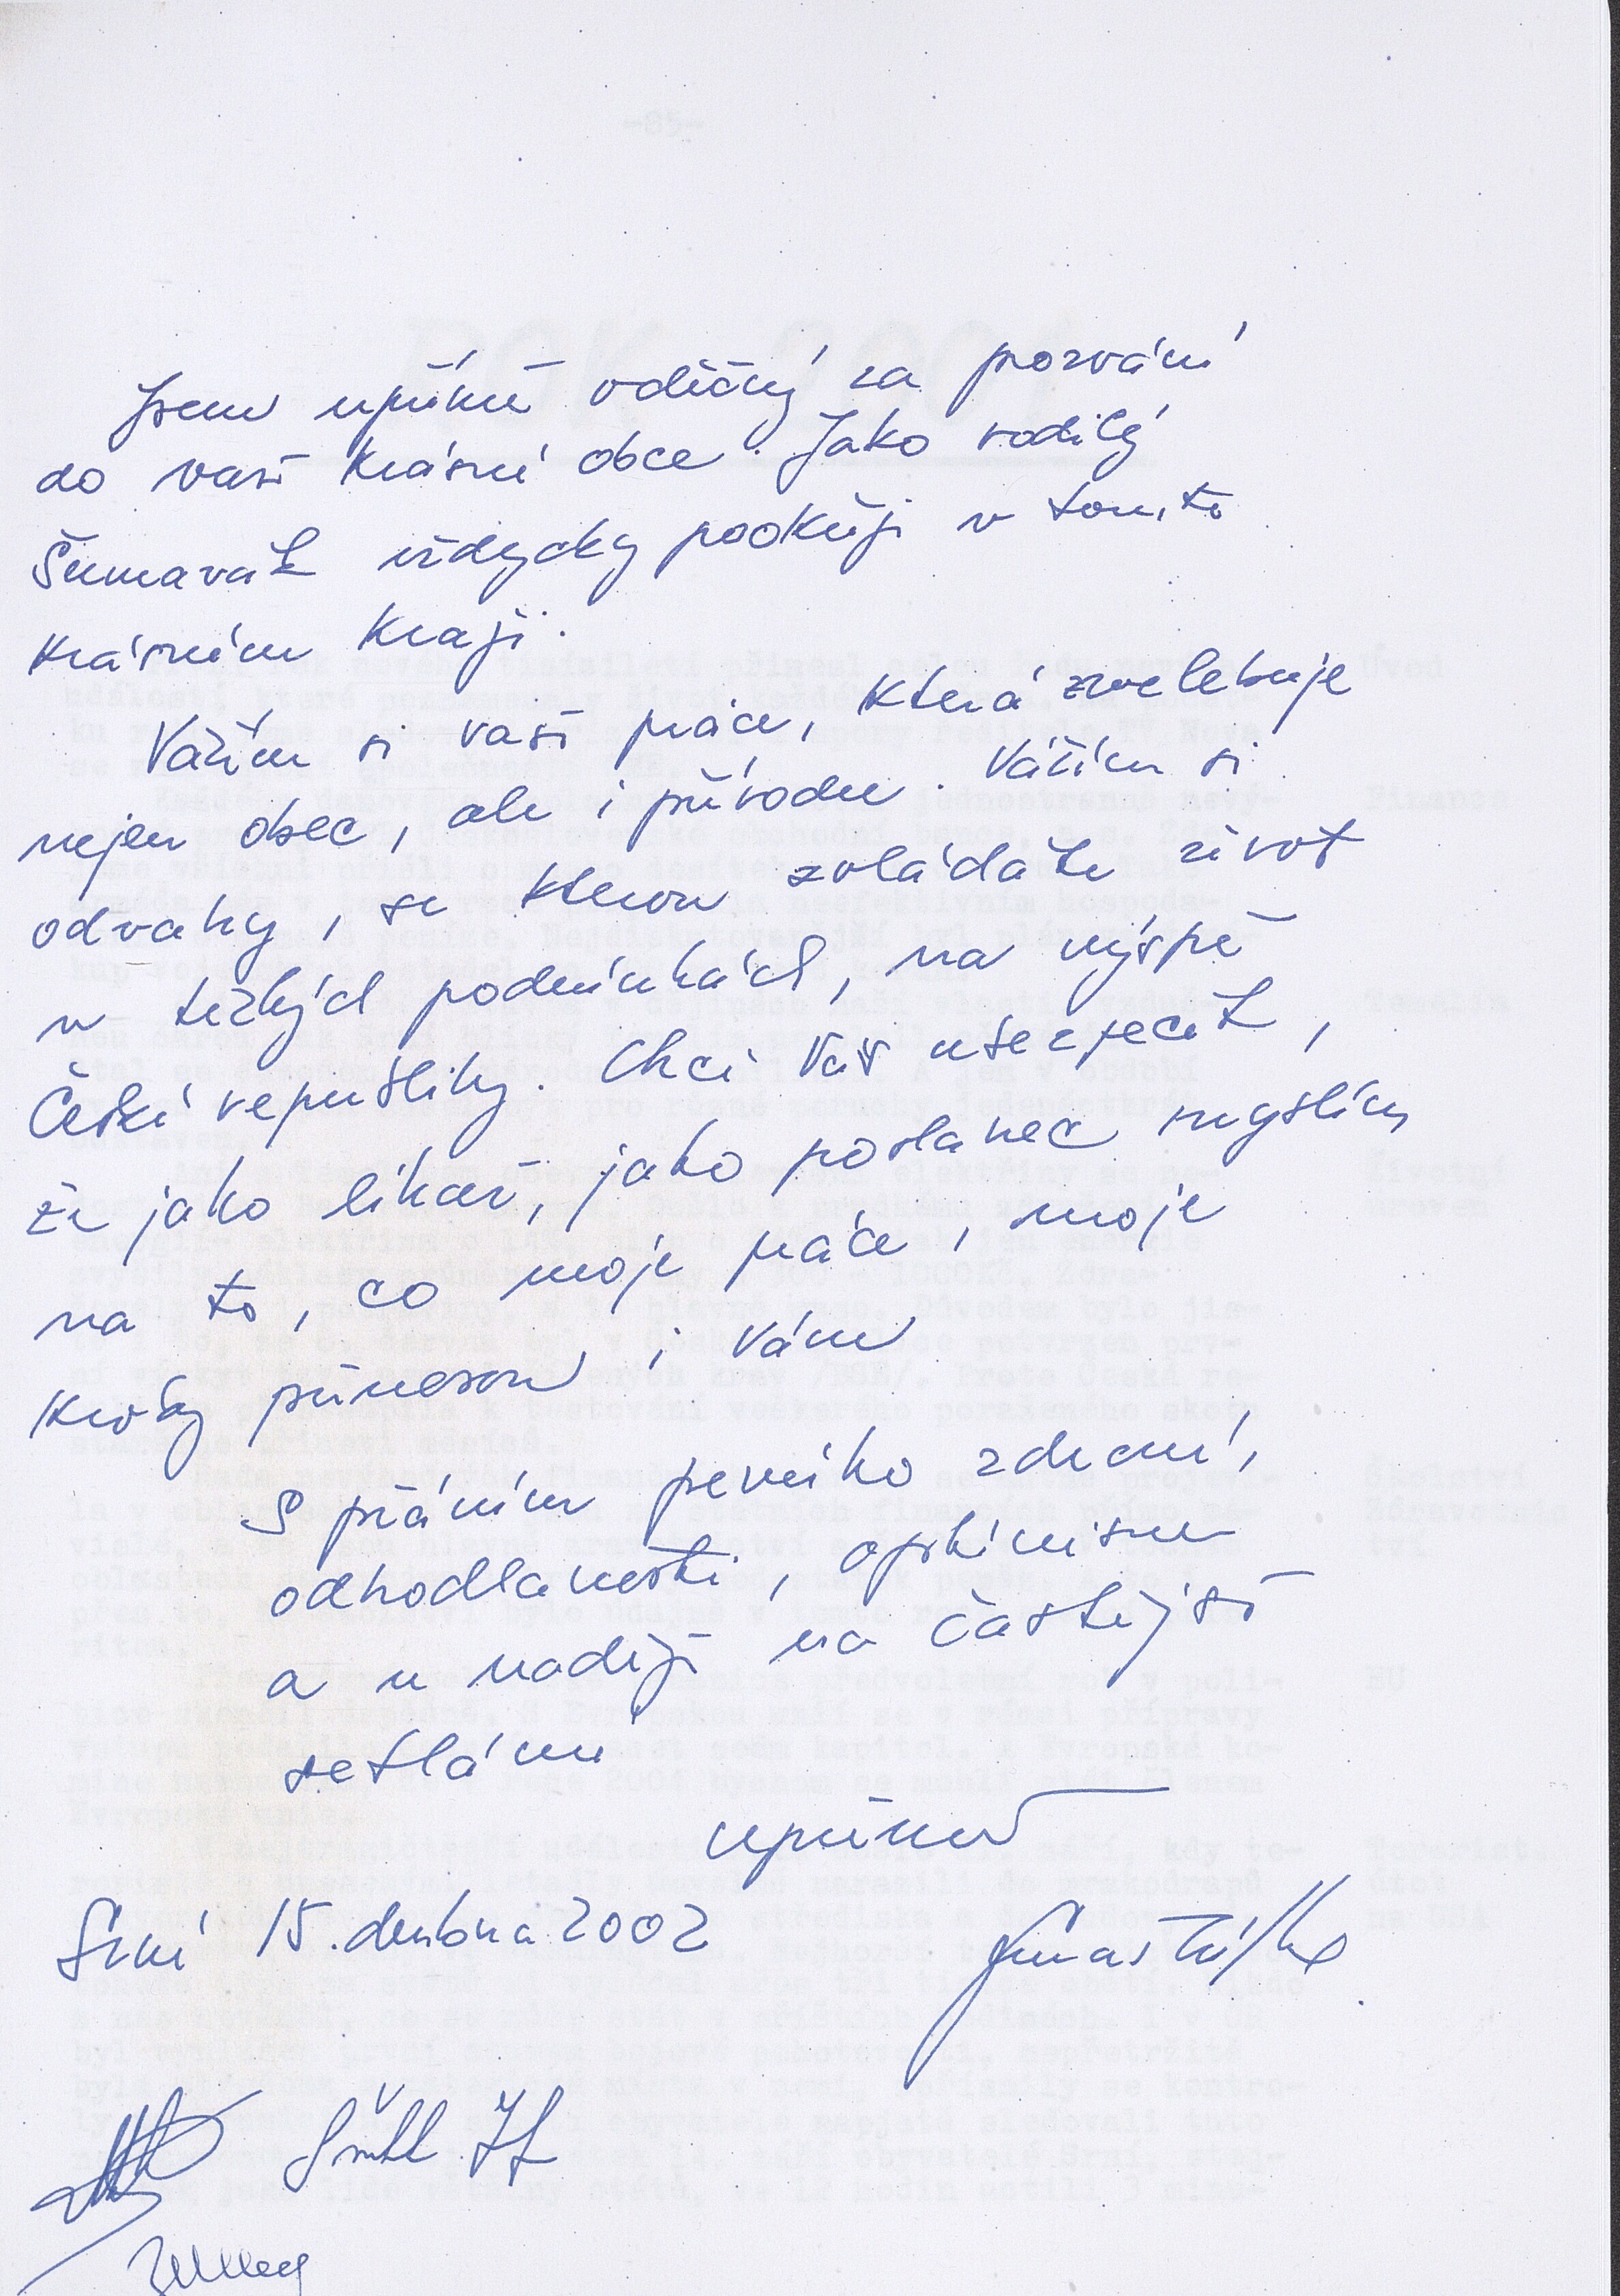 Jsem upřímně vděčný za pozvání
do vaší krásné obce. Jako rodilý
Šumavák vždycky pookřeji v tomto
krásném kraji.
Vážím si vaší práce, která zvelebuje
nejen obec, ale i přírodu. Vážím si
odvahy, se kterou zvládáte život
v těžkých podmínkách, na výspě
České republiky. Chci Vás ubezpečit,
že jako lékař, jako poslanec myslím
na to, co moje práce, moje
kroky přinesou i Vám
S přáním pevného zdraví,
odhodlanosti, optimismu
a v naději na častější
setkání
upřímně
Srní 15. dubna 2002